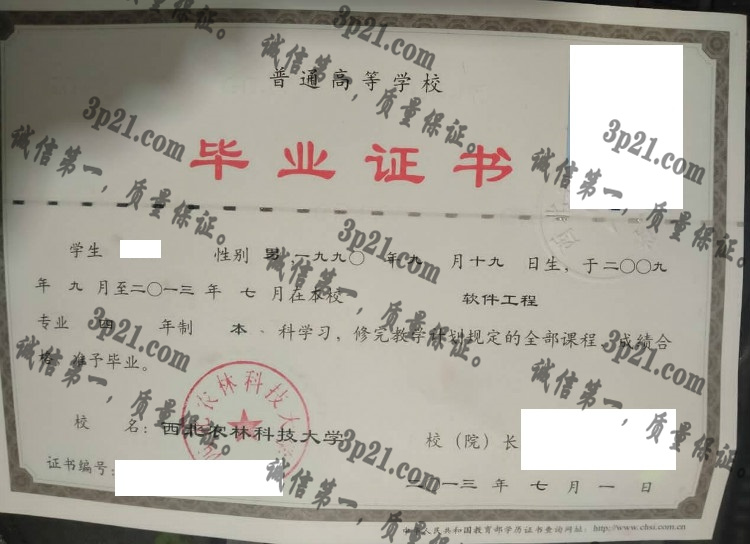 普通高等学校
毕业证书
学生 性别 男 一九九〇 年 九 月 十九 日生，于二〇〇九
年 九 月至二〇一三 年 七 月在本校 软件工程
专业 四 年制 本 科学习，修完教学计划规定的全部课程，成绩合
格，准予毕业。
校 名：西北农林科技大学 校（院）长
证书编号：
二〇一三 年 七 月 一 日
中华人民共和国教育部学历证书查询网址：http://www.chsi.com.cn
3p21.com
诚信第一，质量保证。
3p21.com
诚信第一，质量保证。
3p21.com
诚信第一，质量保证。
3p21.com
诚信第一，质量保证。
3p21.com
诚信第一，质量保证。
3p21.com
诚信第一，质量保证。
3p21.com
诚信第一，质量保证。
3p21.com
诚信第一，质量保证。